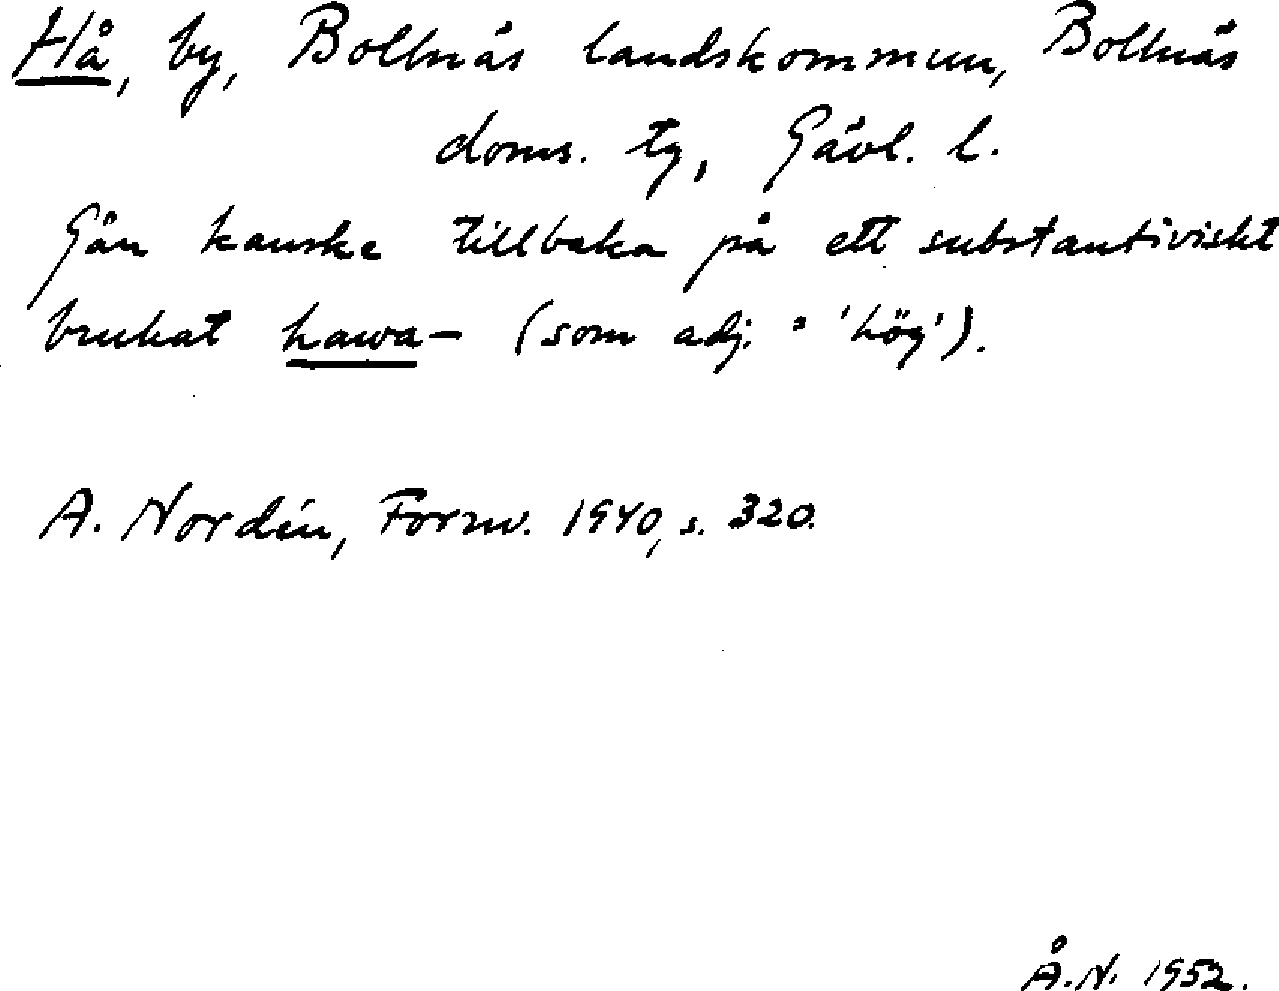 Hå, by, Bollnäs landskommun, Bollnäs
doms. tg, Gävl. l.
Går kanske tillbaka på ett substantiviskt
brukat hawa- (som adj. = 'hög').
A. Nordén, Fornv. 1940, s. 320.
Å.N. 1952.